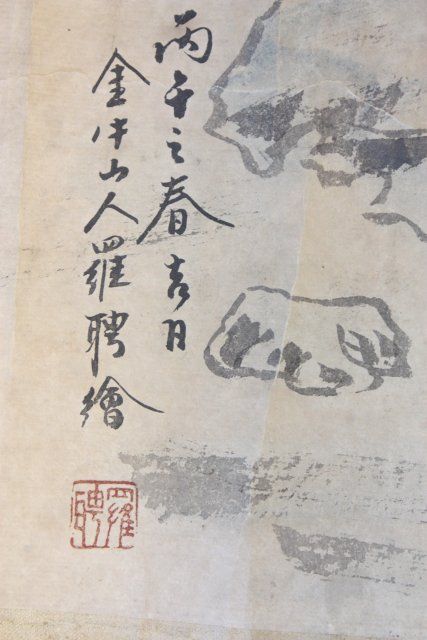 丙午之春吉日
金牛山人羅聘繪
羅聘